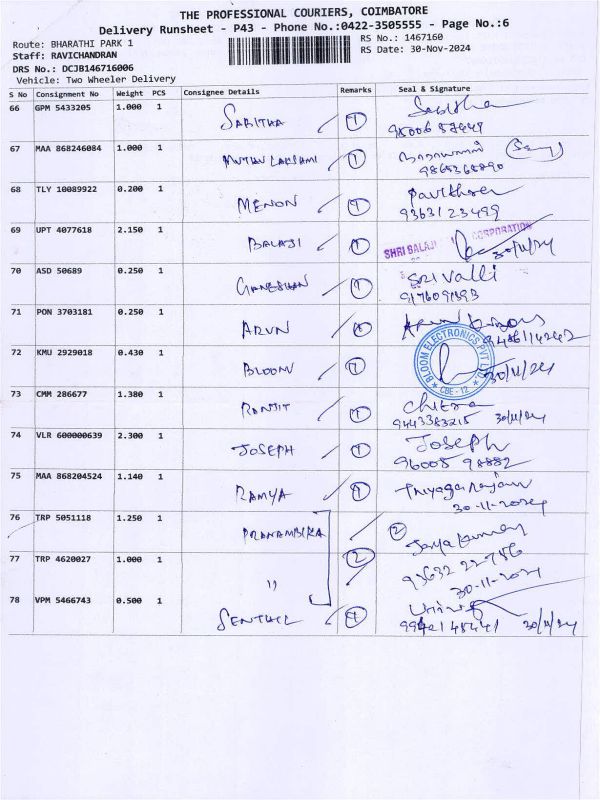 THE PROFESSIONAL COURIERS, COIMBATORE
Delivery Runsheet - P43 - Phone No.:0422-3505555 - Page No.:6
Route: BHARATHI PARK 1
RS No.: 1467160
Staff: RAVICHANDRAN
RS Date: 30-Nov-2024
DRS No.: DCJB146716006
Vehicle: Two Wheeler Delivery
S No Consignment No Weight PCS Consignee Details Remarks Seal & Signature
66 GPM 5433205 1.000 1 SABITHA 1
67 MAA 868246084 1.000 1 MUTHU LAKSHMI 1
68 TLY 10089922 0.200 1 MENON 1 Pavithra
9363123499
69 UPT 4077618 2.150 1 BALAJI 1 SHRI BALAJI CORPORATION
30/11/24
70 ASD 50689 0.250 1 GANESHAN 1 Srivalli
71 PON 3703181 0.250 1 ARUN 1
72 KMU 2929018 0.430 1 BLOOM 1 BLOOM ELECTRONICS PVT LTD
CBE - 12 30/11/24
73 CMM 286677 1.380 1 RANJIT 1 Chitra
9443383215 30/11/24
74 VLR 600000639 2.300 1 JOSEPH 1 Joseph
96005 98882
75 MAA 868204524 1.140 1 RAMYA 1 Thiyagarajan
30-11-2024
76 TRP 5051118 1.250 1 PRANAMBIKA 2 Jayakumar
77 TRP 4620027 1.000 1 " 2 93632 22756
30-11-2024
78 VPM 5466743 0.500 1 SENTHIL 1
30/11/24